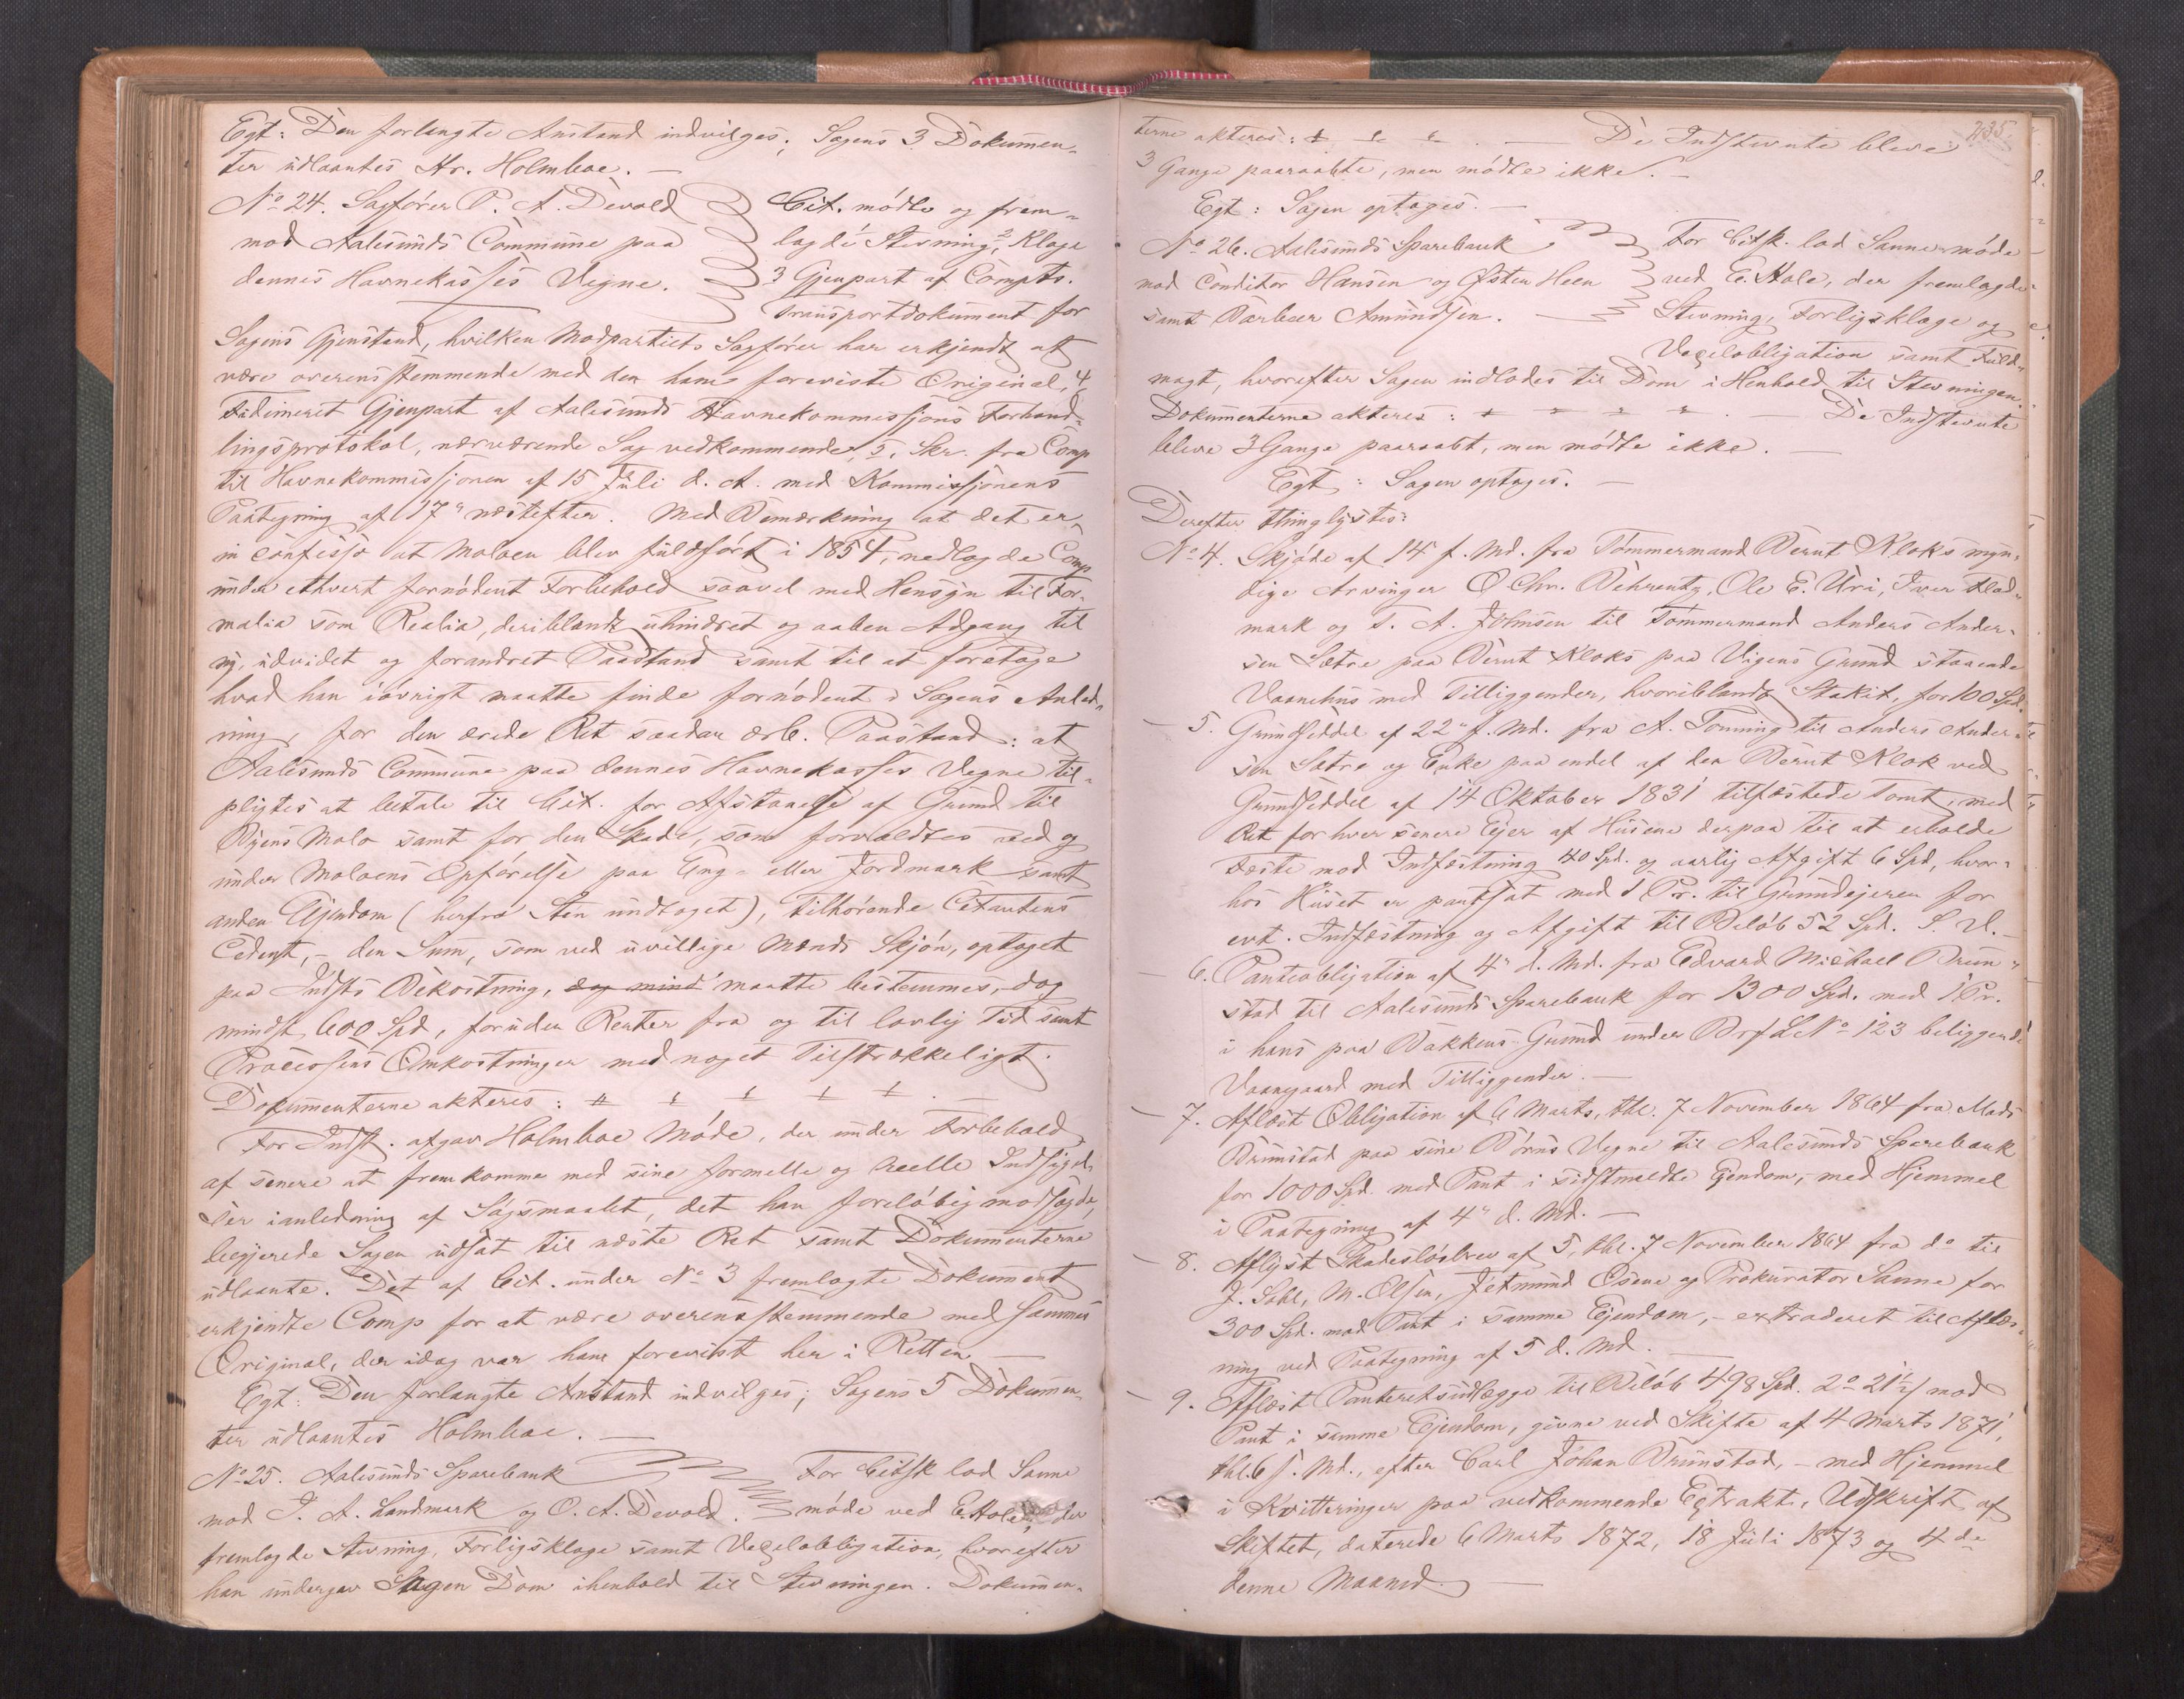 Egt: Den forlangte Anstand indvilges; Sagens 3 Dokumen-
ter udlaantes Hr. Holmboe. —
No 24. Sagfører P. A. Devold
mod Aalesunds Commune paa
dennes Havnekasses Vegne.
Cit. mødte og frem-
lagde Stevning, 2 Klage
3 Gjenpart af Compts.
Transportdokument for
Sagens Gjenstand, hvilken Modpartiets Sagfører har erkjendt at
være overensstemmende med den ham foreviste Original, 4,
Fidimeret Gjenpart af Aalesunds Havnekommissjons Forhand-
lingsprotokol, nærværende Sag vedkommende, 5, Skr. fra Comp
til Havnekommissjonen af 15 Juli d. A. med Kommissjonens
Paategning af 17" næstefter. Med Bemærkning at det er
in confesso at Moloen blev fuldført i 1854, nedlagde Comp
under ethvert fornødent Forbehold saavel med Hensyn til For-
malia som Realia, deriblandt uhindret og aaben Adgang til
ny, udvidet og forandret Paastand samt til at foretage
hvad han iøvrigt maatte finde fornødent i Sagens Anled-
ning, for den ærede Ret saadan ærb. Paastand: at
Aalesunds Commune paa dennes Havnekasses Vegne til-
pligtes at betale til Cit. for Afstaaelse af Grund til
Byens Molo samt for den Skade, som forvoldtes ved og
under Moloens Opførelse paa Eng- eller Jordmark samt
anden Ejendom (herfra Sten undtaget), tilhørende Citantens
Cedent, – den Sum, som ved uvillige Mænds Skjøn, optaget
paa Indsts Bekostning, dog mind maatte bestemmes, dog
mindst 600 Spd, foruden Renter fra og til lovlig Tid samt
Processens Omkostninger med noget Tilstrækkeligt.
Dokumenterne akteres:
For Indst. afgav Holmboe Møde, der under Forbehold
af senere at fremkomme med sine formelle og reelle Indsigel-
ser i anledning af Søgsmaalet, det han foreløbig modsagde,
begjerede Sagen udsat til næste Ret samt Dokumenterne
udlaante. Det af Cit. under No 3 fremlagte Dokument
erkjendte Comp for at være overensstemmende med sammes
Original, der idag var ham forevist her i Retten. —
Egt: Den forlangte Anstand indvilges; Sagens 5 Dokumen-
ter udlaantes Holmboe. —
No 25. Aalesunds Sparebank
mod J. A. Landmark og O. A. Devold.
For Citsk lod Sanne
møde ved E. Hole, der
fremlagde Stevning, Forligsklage samt Vexelobligation, hvorefter
han undergav Sagen Dom i henhold til Stevningen. Dokumen-
235.
terne akteres: — De Indstevnte bleve
3 Gange paaraabte, men mødte ikke. —
Egt: Sagen optages. —
No 26. Aalesunds Sparebank
mod Conditor Hansen og Østen Heen
samt Barbeer Amundsen.
For Citsk. lod Sanne møde
ved E. Hole, der fremlagde
Stevning, Forligsklage og
Vexelobligation samt Fuld-
magt, hvorefter Sagen indlodes til Dom i Henhold til Stevningen.
Dokumenterne akteres: De Indstevnte
bleve 3 Gange paaraabt, men mødte ikke. —
Egt: Sagen optages. —
Derefter thinglystes:
No 4. Skjøde af 14 f. Md. fra Tømmermand Bernt Kloks myn-
dige Arvinger O. Chr. Behrentz, Ole E. Uri, Iver Flad-
mark og S. A. Johnsen til Tømmermand Anders Ander-
sen Sætre paa Bernt Kloks paa Vigens Grund staaende
Vaanehus med Tilliggender, hvoriblandt Stakit, for 100 Spd.
— 5. Grundseddel af 22" f. Md. fra A. Tonning til Anders Ander-
sen Sætre og Enke paa endel af den Bernt Klok ved
Grundseddel af 14 Oktober 1831 tilfæstede Tomt, med
Ret for hver senere Ejer af Husene derpaa til at erholde
Fæste mod Indfæstning 40 Spd. og aarlig Afgift 6 Spd, hvor-
hos Huset er pantsat med 1 Pr. til Grundejeren for
evt. Indfæstning og Afgift til Beløb 52 Spd. S. V. —
6. Panteobligation af 4" d. Md. fra Edvard Michael Brun-
stad til Aalesunds Sparebank for 1300 Spd. med 1 Pr.
i hans paa Bakkens Grund under Brf. L. No 123 beliggende
Vaangaard med Tilliggender. —
— 7. Aflæst Obligation af 6 Marts, thl. 7 November 1864 fra Mads
Brunstad paa sine Børns Vegne til Aalesunds Sparebank
for 1000 Spd. med Pant i sidstmeldte Ejendom, med Hjemmel
i Paategning af 4" d. Md. —
— 8. Aflyst Skadesløsbrev af 5, thl. 7 November 1864 fra do til
J. Sohl, M. Olsen, Jetmund Osene og Prokurator Sanne for
300 Spd. mod Pant i samme Ejendom, – extraderet til Aflæs-
ning ved Paategning af 5 d. Md. —
— 9. Aflæst Panteretsudlægge til Beløb 498 Spd. 2o 21½/ mod
Pant i samme Ejendom, givne ved Skifte af 4 Marts 1871,
thl. 6 f. Md., efter Carl Johan Brunstad, – med Hjemmel
i Kvitteringer paa vedkommende Extrakt. Udskrift af
Skiftet, daterede 6 Marts 1872, 18 Juli 1873 og 4de
denne Maaned. —